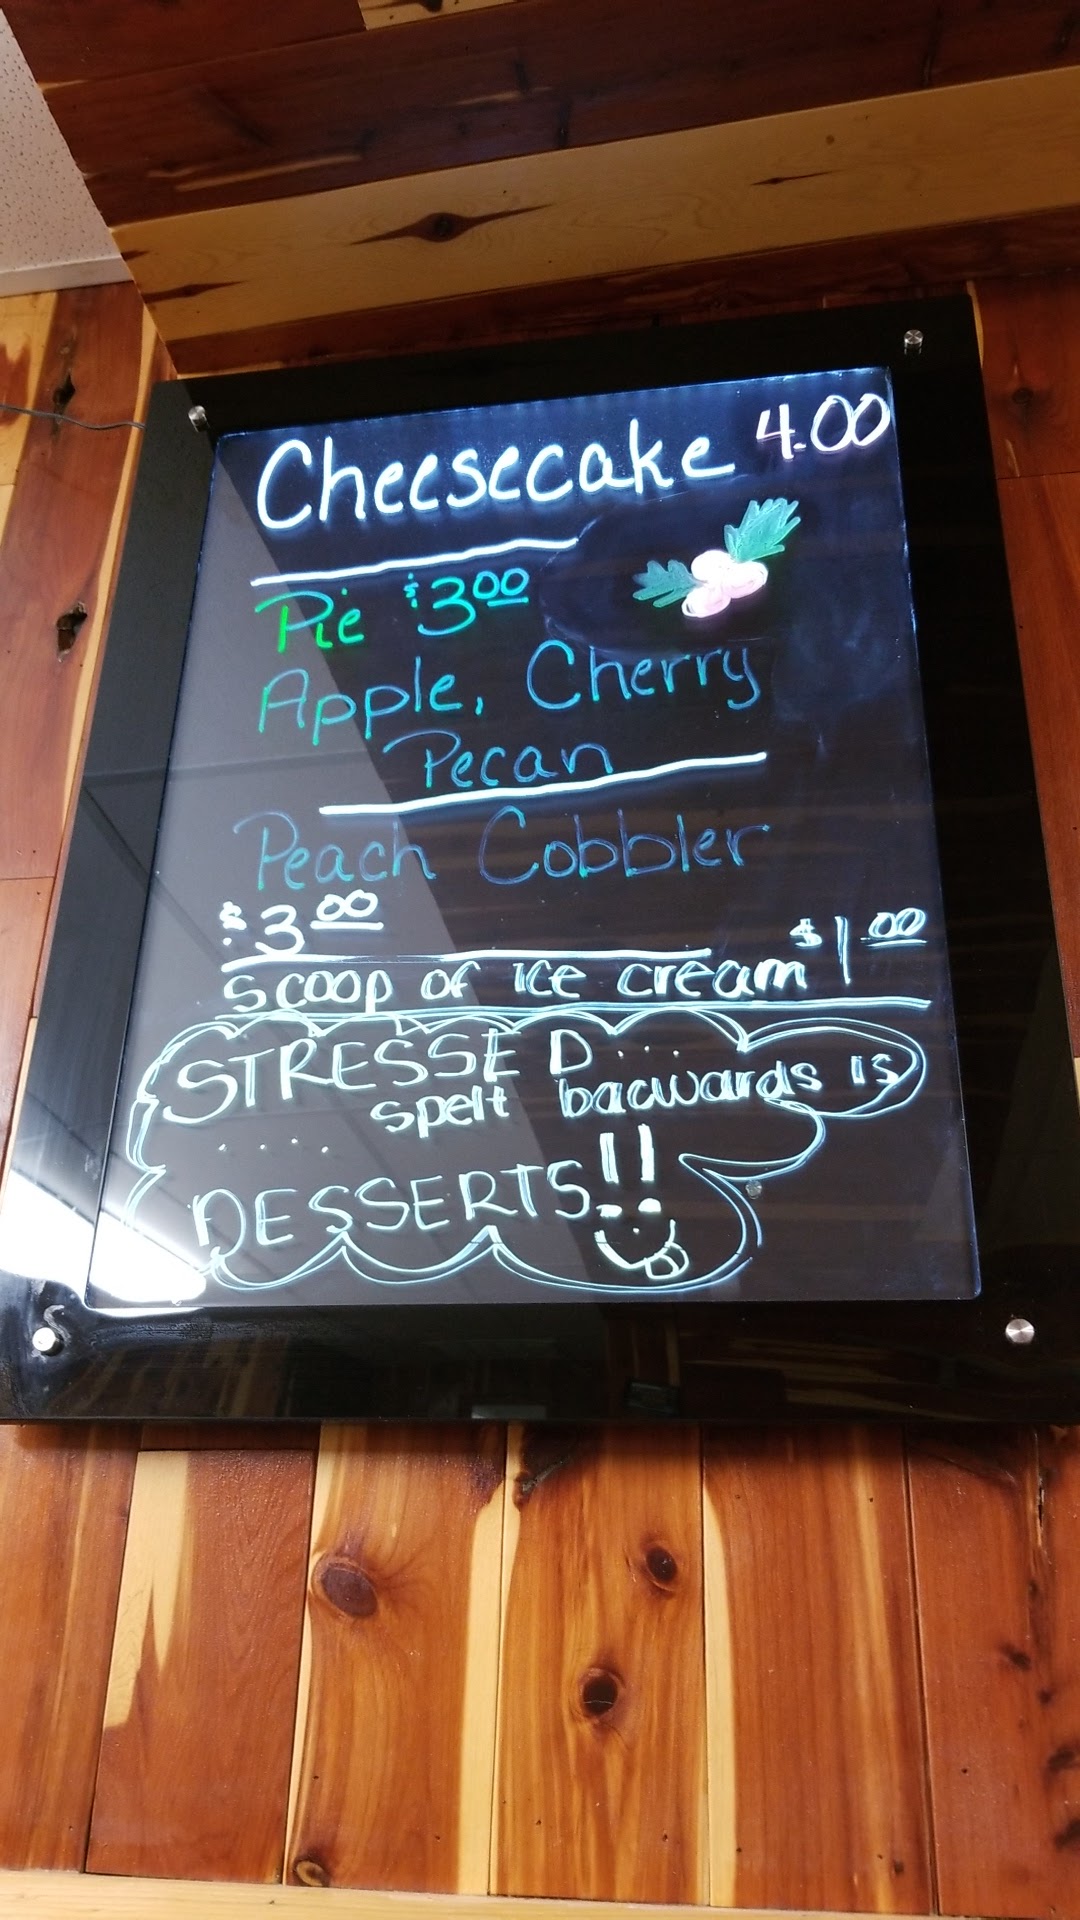 Cheesecake 4.00
Pie $3.00
Apple, Cherry
Pecan
Peach Cobbler
$3.00
scoop of ice cream $1.00
STRESSED....
spelt bacwards is
.....
DESSERTS!!